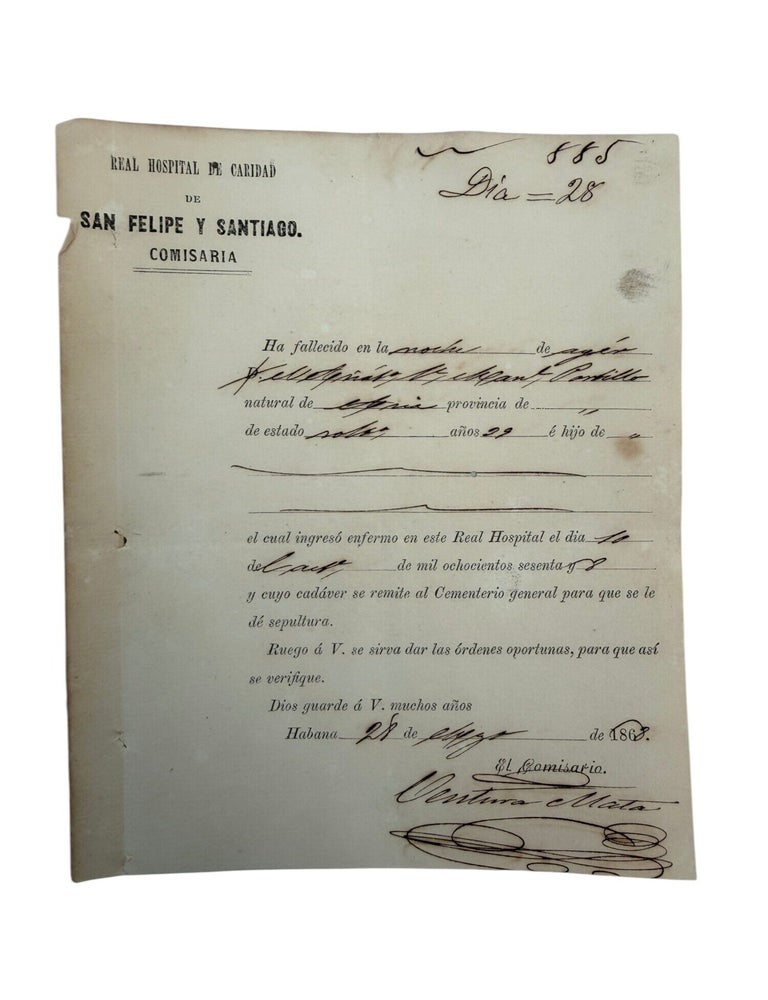 885
Dia = 28
REAL HOSPITAL DE CARIDAD
DE
SAN FELIPE Y SANTIAGO.
COMISARIA
Ha fallecido en la noche de ayér
Portillo
natural de provincia de "
de estado solto años 29 é hijo de "
el cual ingresó enfermo en este Real Hospital el dia 10
de de mil ochocientos sesenta y 8
y cuyo cadáver se remite al Cementerio general para que se le
dé sepultura.
Ruego á V. se sirva dar las órdenes oportunas, para que así
se verifique.
Dios guarde á V. muchos años
Habana 28 de de 1868.
El Comisario.
Ventura Mata